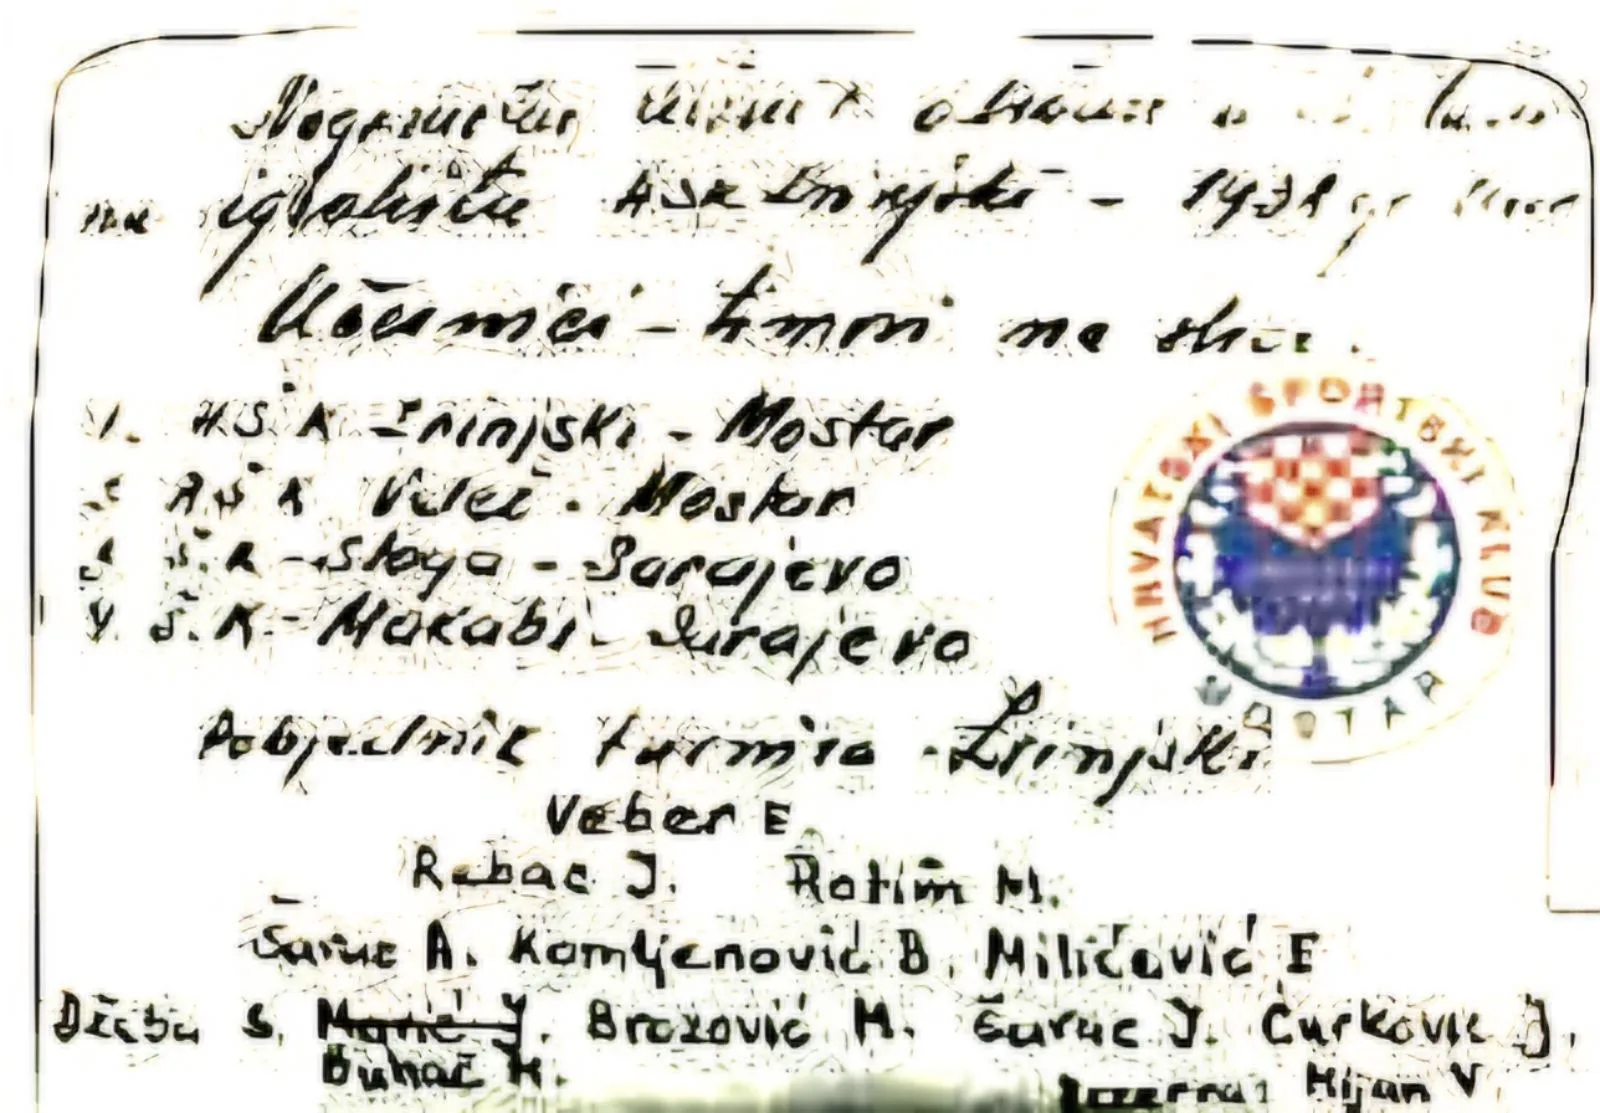 Nogometni
na igralištu HŠK Zrinjski - 1938
Učesnici - timovi na slici.
1. H.Š.K Zrinjski - Mostar
R Š K Velež - Mostar
Š.K - Sloga - Sarajevo
4. Š.K - Makabi - Sarajevo
Pobjednik turnira - Zrinjski
Veber E.
Rebac J. Rotim M.
Šarac A. Komljenović B. Milićević E
Džeba S. Marić J. Brozović M. Šarac J. Ćurković J.
Buhač M.
Rezerva: Mijan V
HRVATSKI SPORTSKI KLUB
MOSTAR